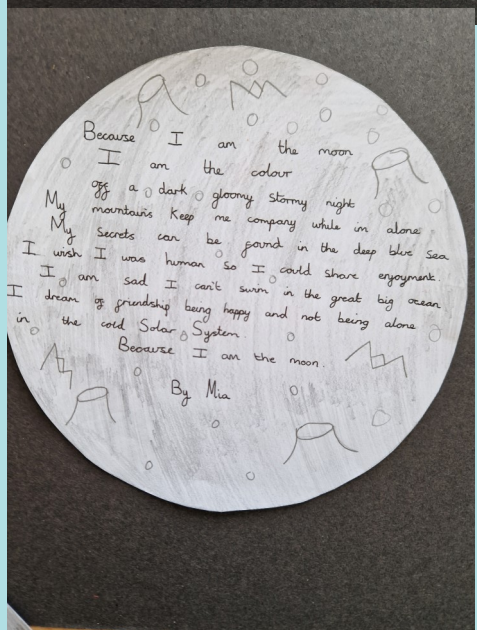 Because I am the moon
I am the colour
off a dark gloomy stormy night
My mountains Keep me company while im alone
My secrets can be found in the deep blue sea
I wish I was human so I could share enjoyment.
I am sad I can't swim in the great big ocean
I dream of friendship being happy and not being alone
in the cold Solar System.
Because I am the moon.
By Mia